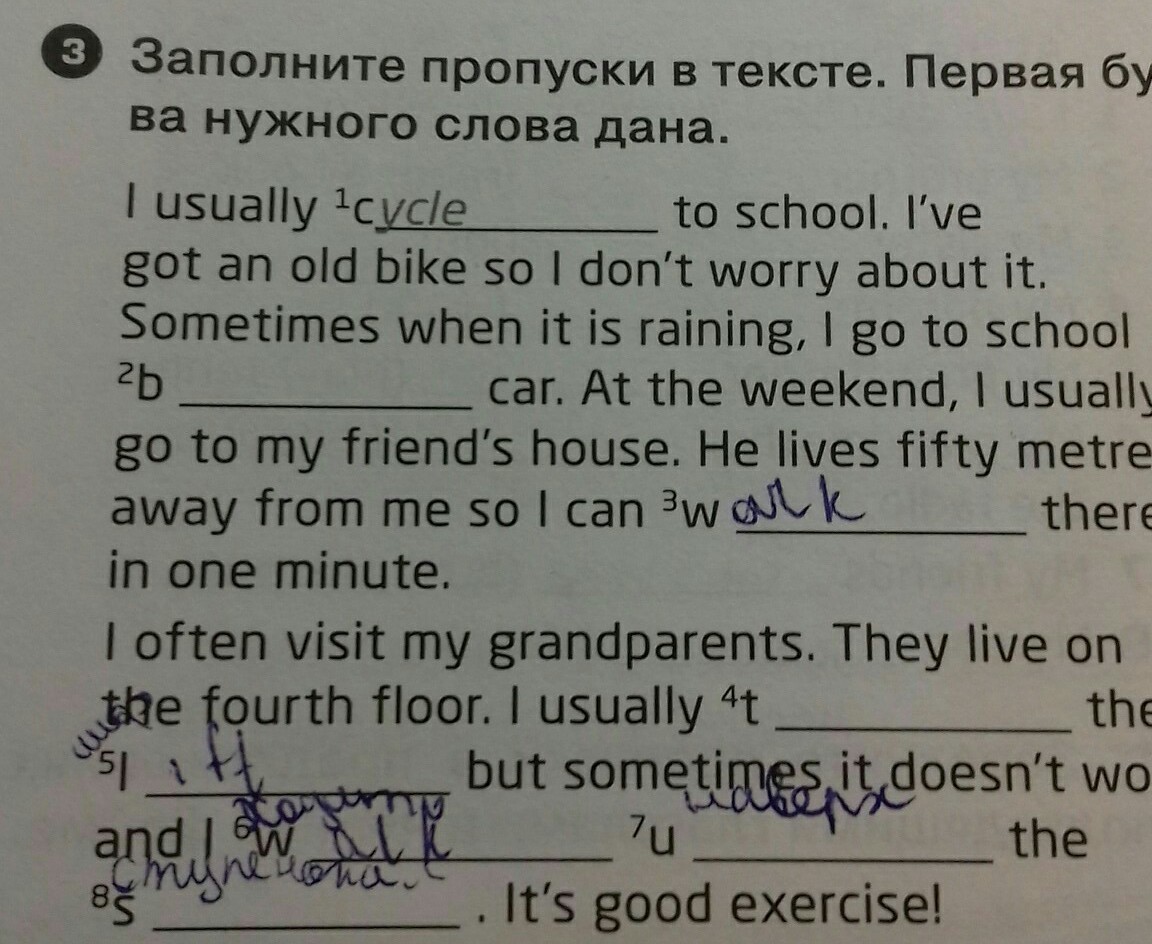 3 Заполните пропуски в тексте. Первая бу
ва нужного слова дана.
I usually ¹cycle to school. I've
got an old bike so I don't worry about it.
Sometimes when it is raining, I go to school
²b ____________ car. At the weekend, I usually
go to my friend's house. He lives fifty metre
away from me so I can ³walk there
in one minute.
I often visit my grandparents. They live on
the fourth floor. I usually ⁴t ____________ the
⁵lift but sometimes it doesn't wo
наверх
and I ⁶walk ⁷u ____________ the
⁸s ____________ . It's good exercise!